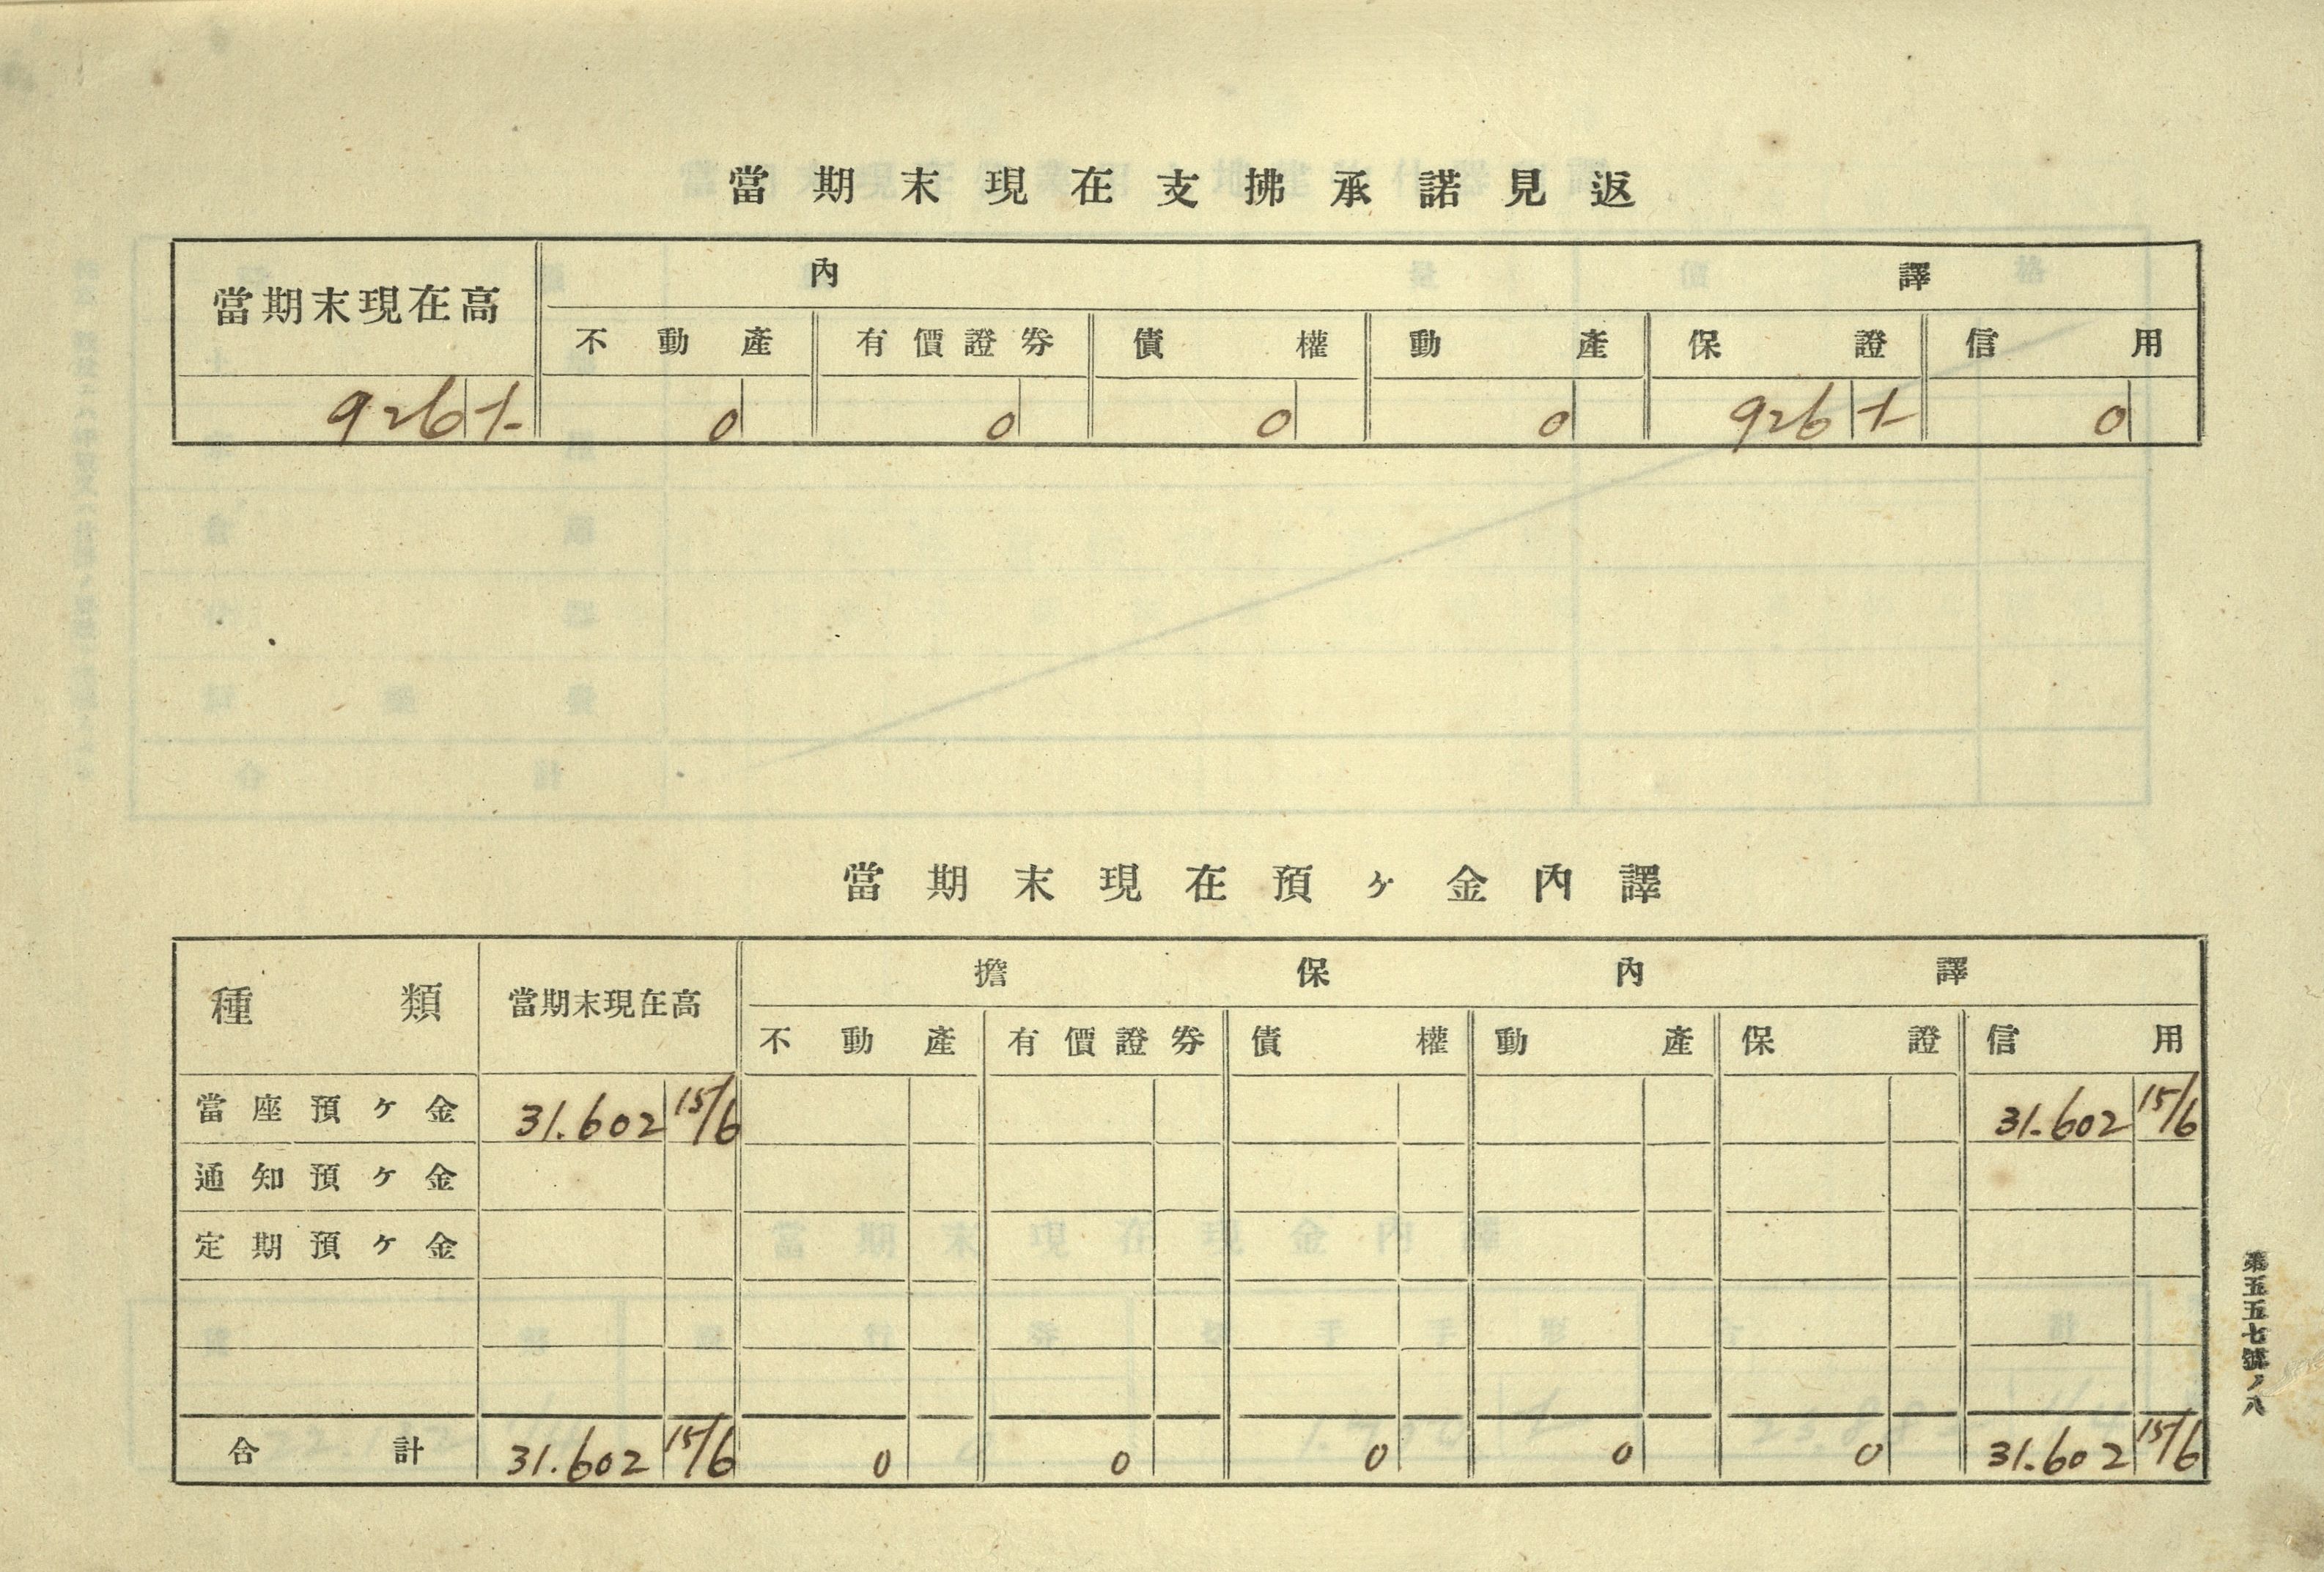 當期末現在支拂承諾見返
當期末現在高 內譯
不動產 有價證券 債權 動產 保證 信用
926 0 0 0 0 926 0
當期末現在預ヶ金內譯
種類 當期末現在高 擔保內譯
不動產 有價證券 債權 動產 保證 信用
當座預ヶ金 31.602 15/6 31.602 15/6
通知預ヶ金
定期預ヶ金
合計 31.602 15/6 0 0 0 0 0 31.602 15/6
第五五七號ノ八